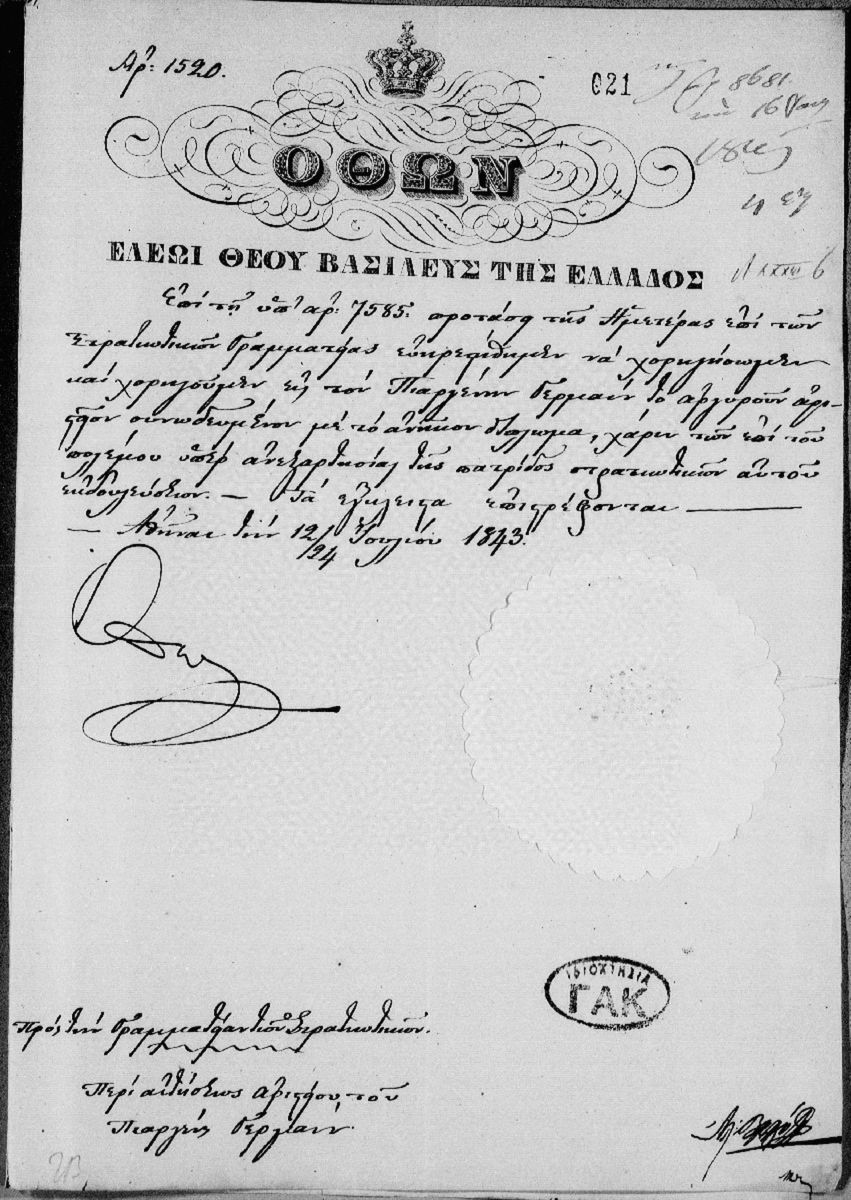 Αρ: 1520.
021
8681
16
ΟΘΩΝ
ΕΛΕΩΙ ΘΕΟΥ ΒΑΣΙΛΕΥΣ ΤΗΣ ΕΛΛΑΔΟΣ
Επί τη υπ' αρ: 7585. προτάσει της Ημετέρας επί των
Στρατιωτικών Γραμματείας ευηρεστήθημεν να χορηγήσωμεν
και χορηγούμεν εις τον Πιαργένην Γερμαίν το αργυρούν αρι-
στείον συνωδευμένον με το ανήκον δίπλωμα, χάριν των επί του
πολέμου υπέρ ανεξαρτησίας της πατρίδος στρατιωτικών αυτού
εκδουλεύσεων. — Τα έγκλειστα επιστρέφονται —
— Αθήναι την 12/24 Ιουλίου 1843.
ΙΔΙΟΚΤΗΣΙΑ
ΓΑΚ
Προς την Γραμματείαν των Στρατιωτικών.
Περί αιτήσεως αριστείου του
Γερμαίν